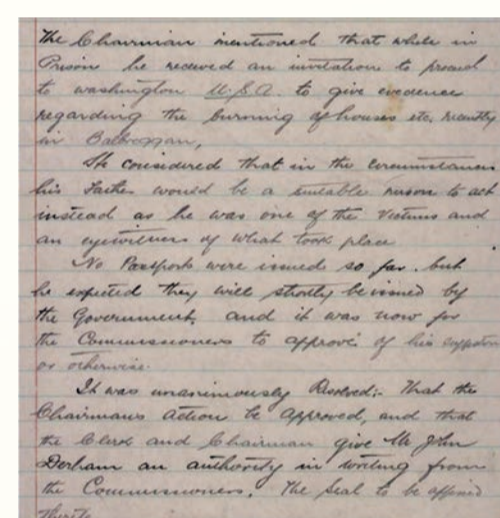 The Chairman mentioned that while in
Prison he received an invitation to proceed
to washington U.S.A. to give evidence
regarding the burning of houses etc. recently
in Balbriggan,
He considered that in the circumstances
his Father would be a suitable person to act
instead as he was one of the victims and
an eyewitness of what took place
No Passports were issued so far but
he expected they will shortly be issued by
the Government. and it was now for
the Commissioners to approve of his
or otherwise.
It was unanimously Resolved:- That the
Chairmans Action be approved, and that
the Clerk and Chairman give Mr John
Derham an authority in writing from
the Commissioners. The Seal to be affixed
thereto